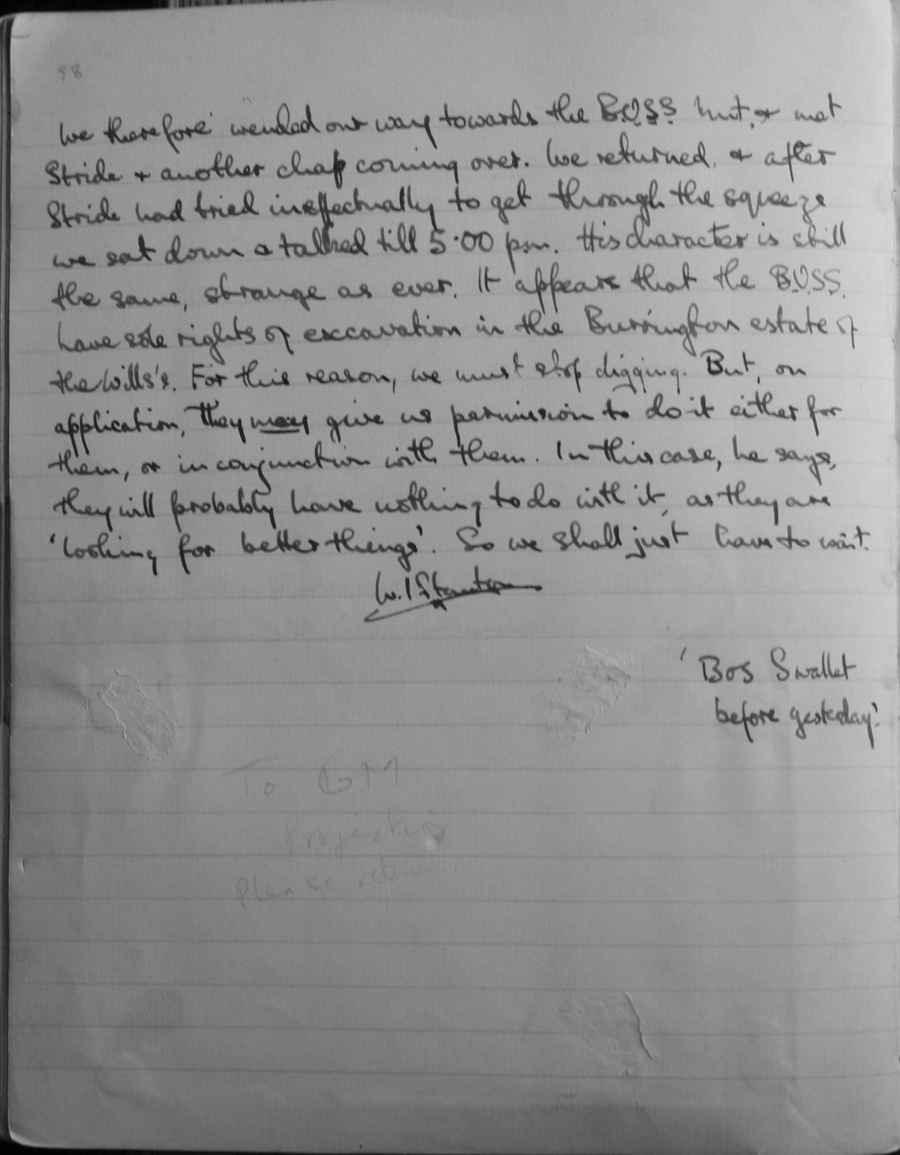 58
We therefore wended our way towards the B.U.S.S. hut, & met
Stride & another chap coming over. We returned, & after
Stride had tried ineffectually to get through the squeeze
we sat down & talked till 5.00 pm. His character is still
the same, strange as ever. It appears that the B.U.S.S.
have sole rights of excavation in the Burrington estate of
the Wills's. For this reason, we must stop digging. But, on
application, they may give us permission to do it either for
them, or in conjunction with them. In this case, he says,
they will probably have nothing to do with it, as they are
'looking for better things'. So we shall just have to wait.
W.I. Stanton
'Bos Swallet
before yesterday'.
To
Please